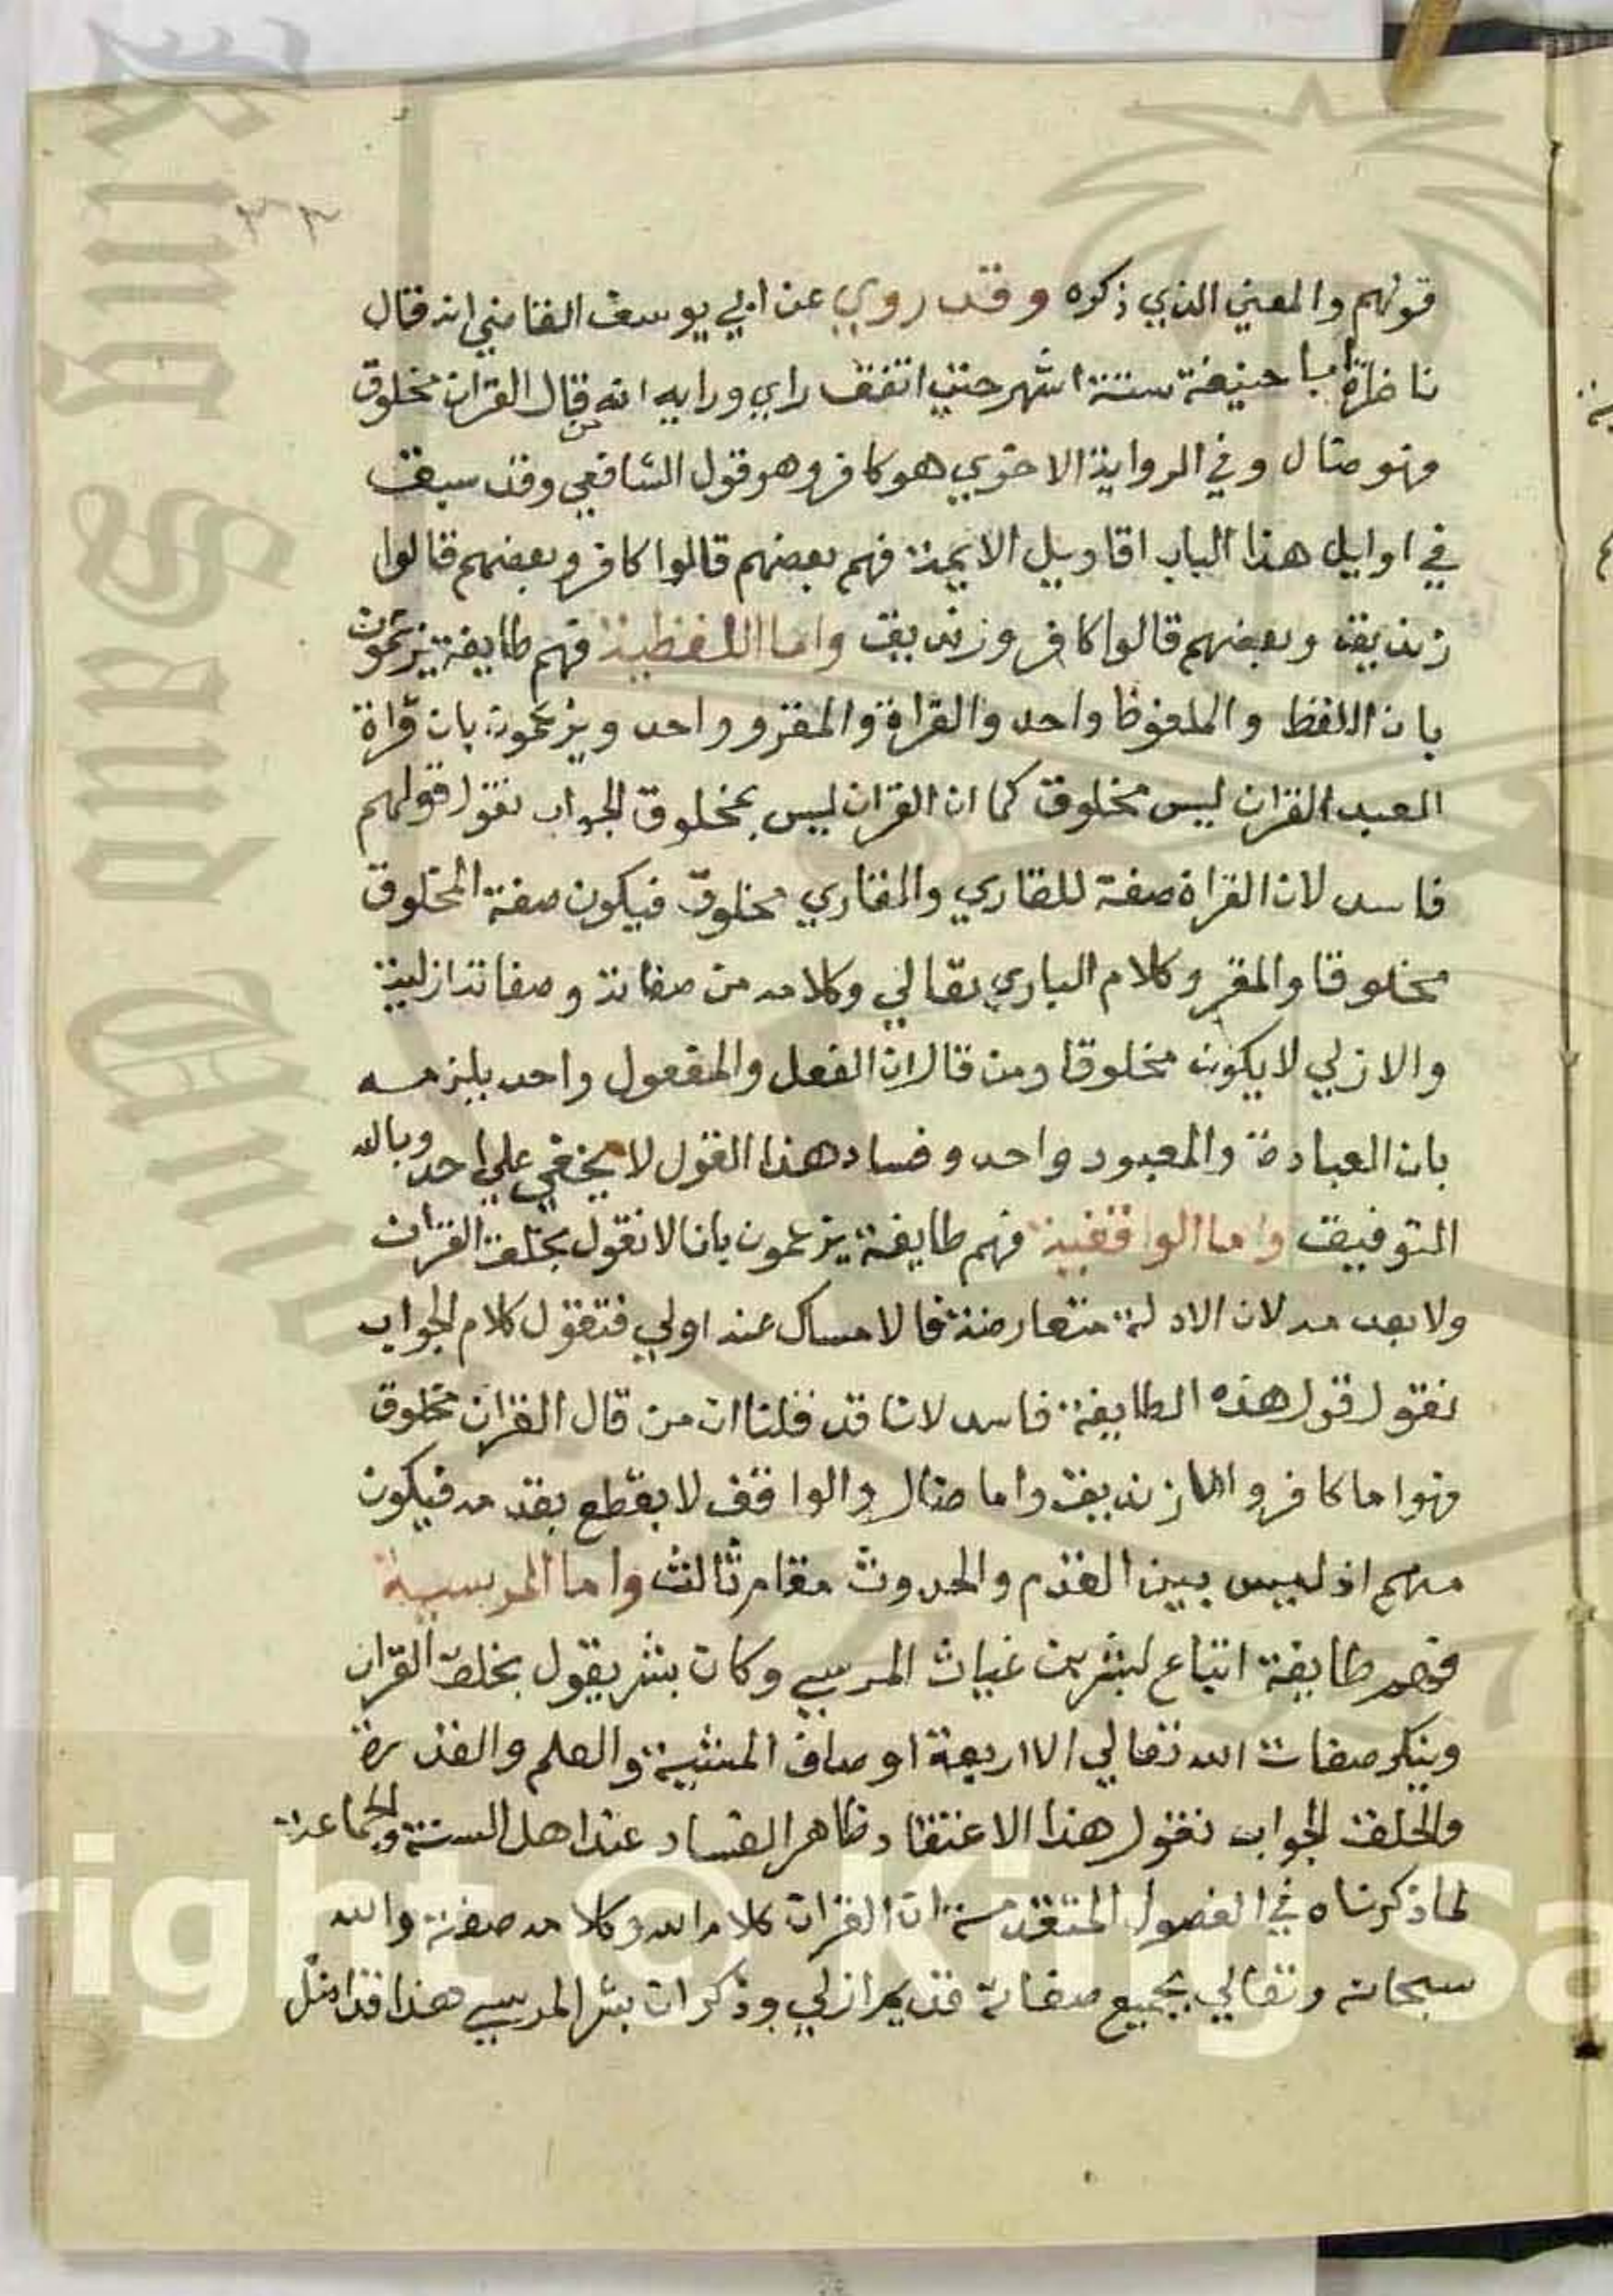 ٣٣
قولهم والمعني الذي ذكره وقد روي عن ابي يوسف القاضي انه قال
ناظرة ابا حنيفة ستة اشهر حتي اتفق راي ورايه انه من قال القران مخلوق
فهو ضال وفي الرواية الاخري هو كافر وهو قول الشافعي وقد سبق
في اوايل هذا الباب اقاويل الايمة فهم بعضهم قالوا كافر وبعضهم قالوا
زنديق وبعضهم قالوا كافر وزنديق واما اللفظية فهم طايفة يزعمون
بان اللفظ والملفوظ واحد والقراة والمقرو واحد ويزعمون بان قراة
العبد القران ليس مخلوق كما ان القران ليس بمخلوق الجواب نقول قولهم
فاسد لان القراة صفة للقاري والقاري مخلوق فيكون صفة المخلوق
مخلوقا والمقرو كلام الباري تعالي وكلامه من صفاته وصفاته ازلية
والازلي لا يكون مخلوقا ومن قال ان الفعل والمفعول واحد يلزمه
بان العبادة والمعبود واحد وفساد هذا القول لا يخفي علي احد وبالله
التوفيق واما الواقفية فهم طايفة يزعمون بانا لا نقول بخلق القران
ولا بعدمه لان الادلة متعارضة فالامساك عنه اولي فتقول كلام الجواب
نقول قول هذه الطايفة فاسد لانا قد قلنا ان من قال القران مخلوق
فهو اما كافر واما زنديق واما ضال والواقف لا يقطع بقدمه فيكون
منهم اذ ليس بين القدم والحدوث مقام ثالث واما المريسية
فهم طايفة اتباع لبشر بن غياث المريسي وكان بشر يقول بخلق القران
وينكر صفات الله تعالي الا اربعة اوصاف المشية والعلم والقدرة
والخلق الجواب نقول هذا الاعتقاد ظاهر الفساد عند اهل السنة والجماعة
لما ذكرناه في الفصول المتقدمة ان القران كلام الله وكلامه صفته والله
سبحانه وتعالي بجميع صفاته قديم ازلي وذكر ان بشر المريسي هذا قد اضل